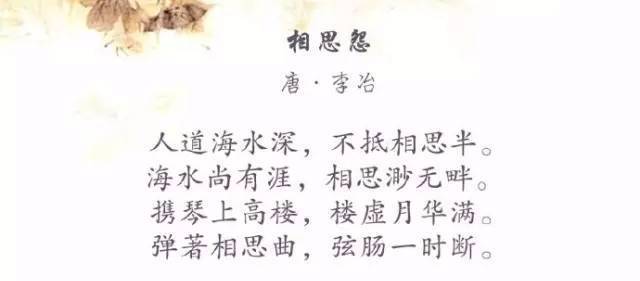 相思怨
唐·李冶
人道海水深，不抵相思半。
海水尚有涯，相思渺无畔。
携琴上高楼，楼虚月华满。
弹著相思曲，弦肠一时断。